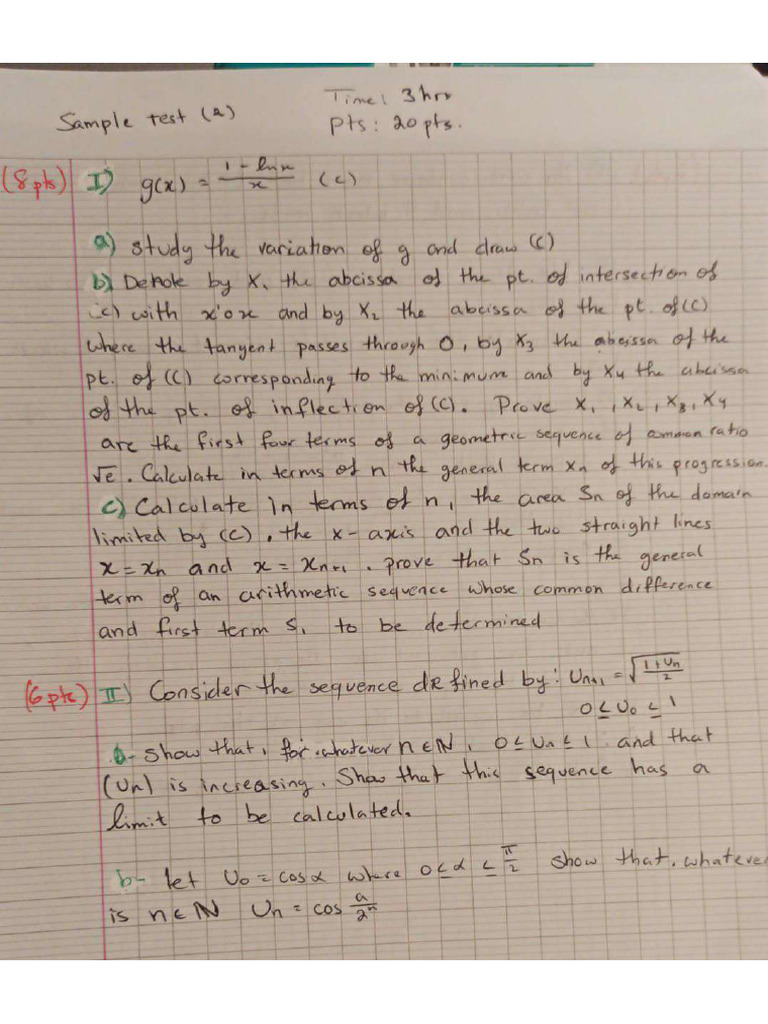 Sample test (2)
Time: 3 hrs
Pts: 20 pts.
(8 pts) I) g(x) = (1 - ln x)/x (C)
a) study the variation of g and draw (C)
b) Denote by X₁ the abcissa of the pt. of intersection of
(c) with x'ox and by X₂ the abcissa of the pt. of (C)
where the tangent passes through O, by X₃ the abcissa of the
pt. of (C) corresponding to the minimum and by X₄ the abcissa
of the pt. of inflection of (C). Prove X₁, X₂, X₃, X₄
are the first four terms of a geometric sequence of common ratio
√e. Calculate in terms of n the general term Xn of this progression.
c) Calculate in terms of n, the area Sn of the domain
limited by (C), the x-axis and the two straight lines
x = xn and x = xn+1. prove that Sn is the general
term of an arithmetic sequence whose common difference
and first term S₁ to be determined
(6 pts) II) Consider the sequence defined by: Un+1 = √((1+Un)/2)
0 ≤ U₀ ≤ 1
a- Show that, for whatever n ∈ ℕ, 0 ≤ Un ≤ 1 and that
(Un) is increasing. Show that this sequence has a
limit to be calculated.
b- let U₀ = cos α where 0 ≤ α ≤ π/2 show that, whatever
is n ∈ ℕ Un = cos a/2ⁿ